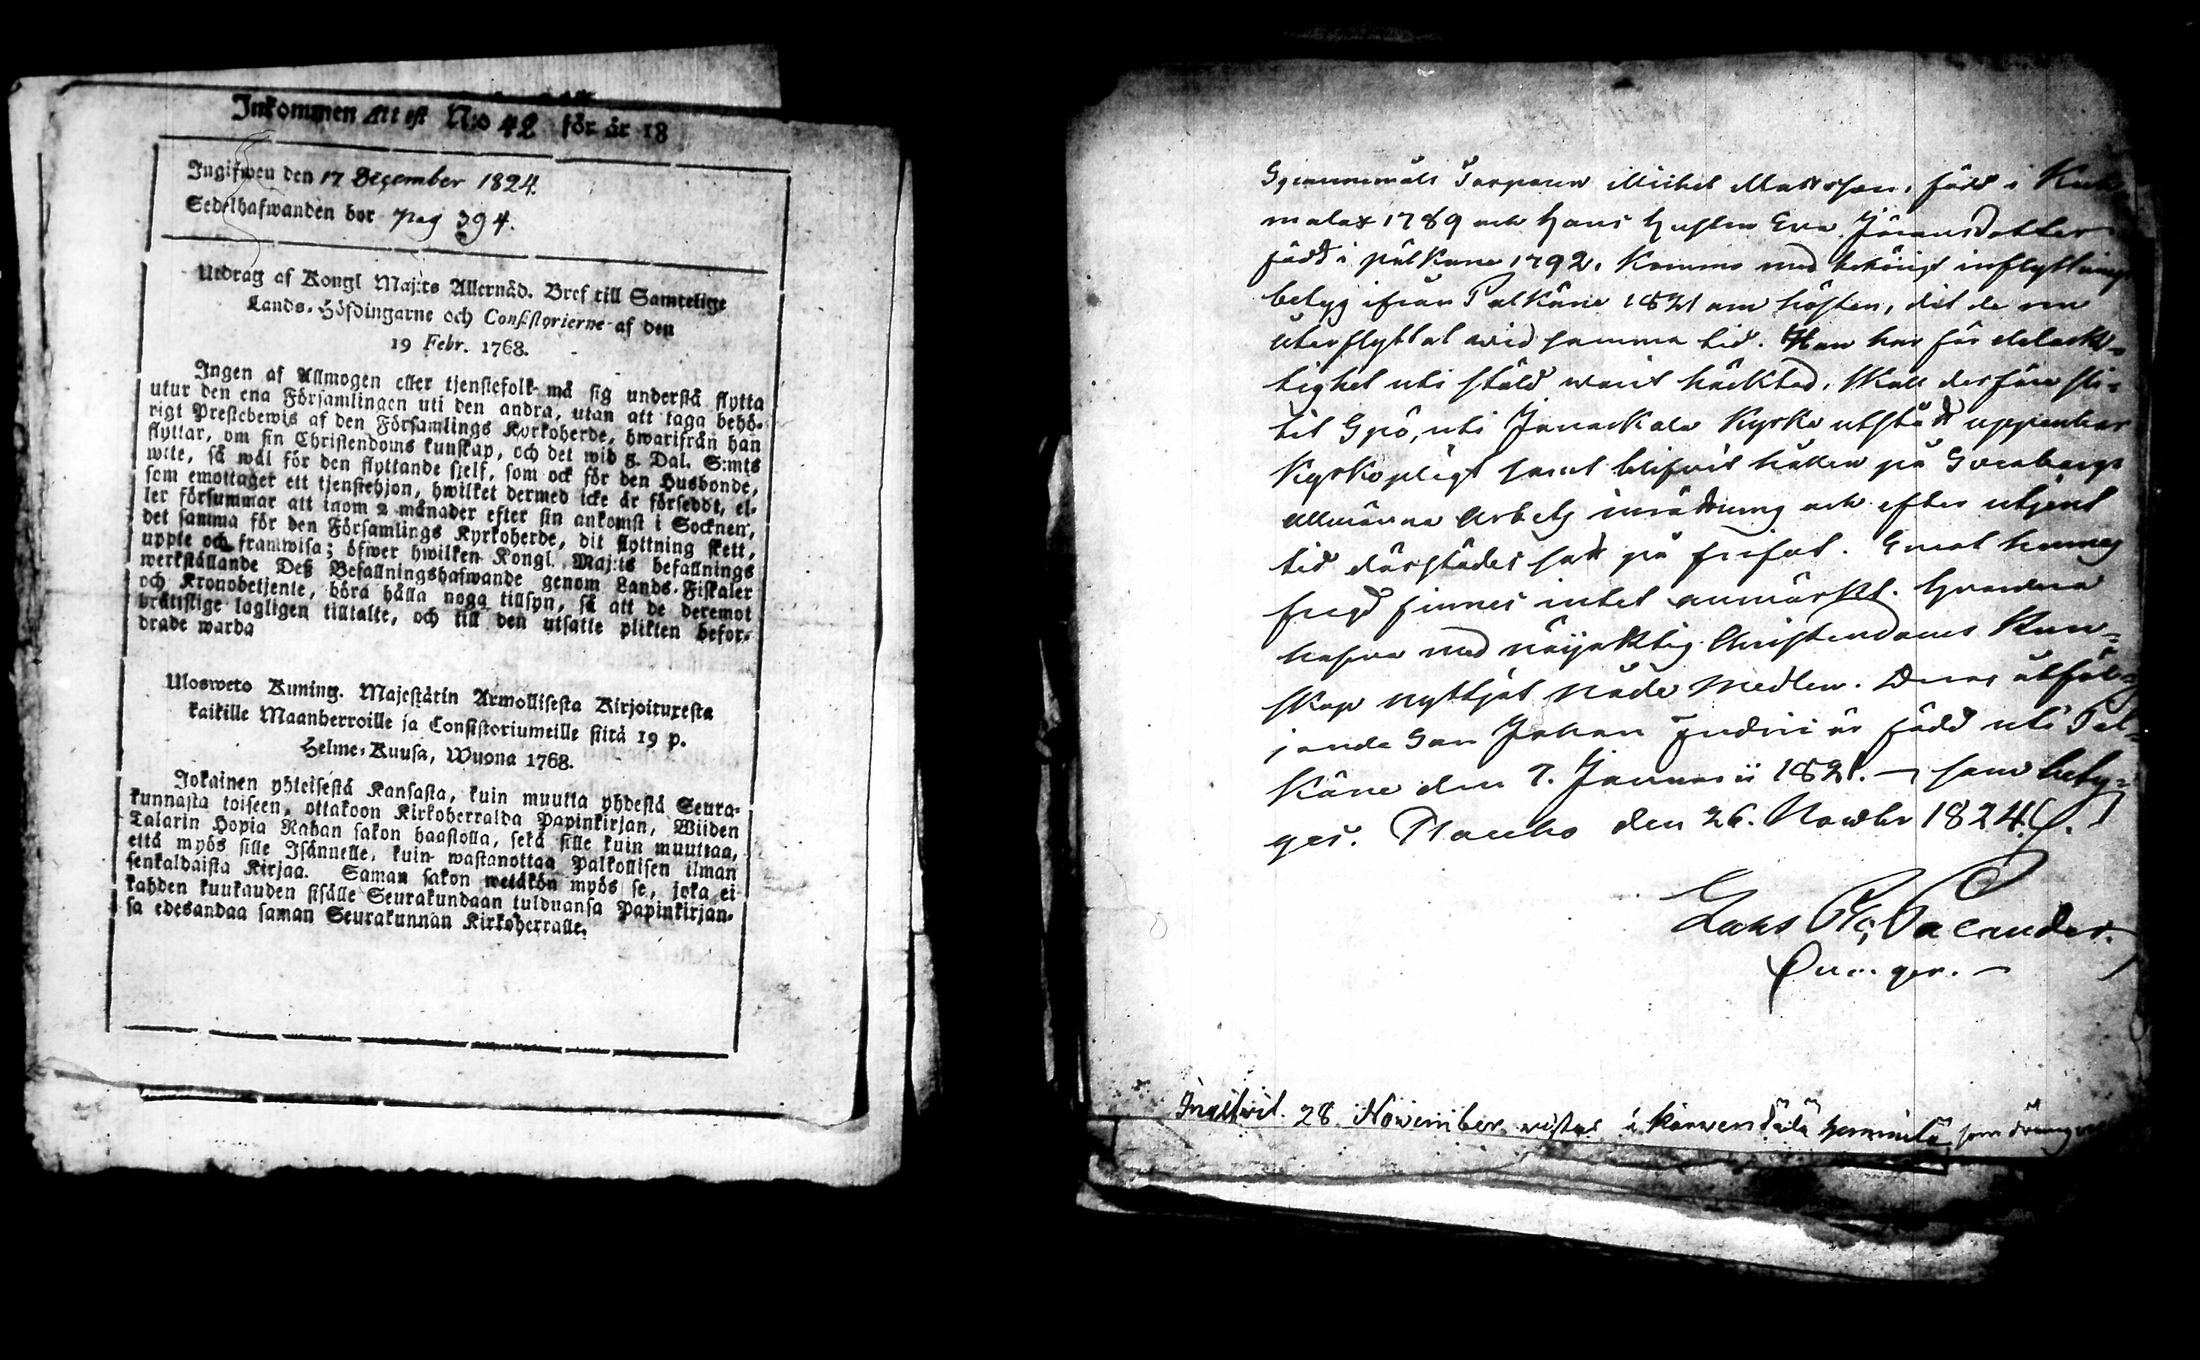 Inkommen Attest N:o 42 för år 18
Ingifwen den 17 December 1824.
Sedelhafwanden bor pag 394.
Utdrag af Kongl Maj:ts Allernåd. Bref till Samtelige
Lands-Höfdingarne och Consistorierne af den
19 Febr. 1768.
Ingen af Allmogen eller tjenstefolk må sig understå flytta
utur den ena Församlingen uti den andra, utan att taga behö-
rigt Prestebewis af den Församlings Kyrkoherde, hwarifrån han
flyttar, om sin Christendoms kunskap, och det wid 5. Dal. S:mts
wite, så wäl för den flyttande sjelf, som ock för den Husbonde,
som emottaget ett tjenstehjon, hwilket dermed icke är försedt, el-
ler försummar att inom 2 månader efter sin ankomst i Socknen,
det samma för den Församlings Kyrkoherde, dit flyttning skett,
uppte och framwisa; öfwer hwilken Kongl. Maj:ts befallnings
werkställande Deß Befallningshafwande genom Lands-Fiskaler
och Kronobetjente, böra hålla noga tillsyn, så att de deremot
brättslige lagligen tilltalte, och till den utsatte plikten befor-
drade warda
Ulosweto Kuning. Majestätin Armollisesta Kirjoituxesta
kaikille Maanherroille ja Consistoriumeille siitä 19 p.
Helme-Kuusa, Wuona 1768.
Jokainen yhteisestä Kansasta, kuin muutta yhdestä Seura-
kunnasta toiseen, ottakoon Kirkoherralda Papinkirjan, Wiiden
Talarin Hopia Rahan sakon haastolla, sekä sille kuin muuttaa,
että myös sille Isännelle, kuin wastanottaa Palkollisen ilman
senkaldaista Kirjaa. Saman sakon wetäkön myös se, joka ei
kahden kuukauden sisälle Seurakundaan tulduansa Papinkirjan-
sa edesandaa saman Seurakunnan Kirkoherralle.
Torparen Michel Mattsson, född i Kuk
malax 1789 och Hans Hustru Eva Jöransdotter
född i pälkäne 1792. Kommo med behörigt inflyttnings
betyg ifrån Palkäne 1821 om hösten, dit de nu
återflyttat wid samma tid. Han har för delack-
tighet uti stöld warit häcktad, skall derföre
uti Janackala Kyrka utstått uppenbar
Kyrkoplight samt blifvit hållen på Sveaborgs
allmänna Arbets inrättning och efter utjent
tid därstädes satt på frifot.
fregd finnes intet anmärkt.
hafva med nöjaktig Christendoms Kun-
skap nyttjat Nåde Medlen. Deras åtföl-
jande Son Johan är född uti Pal-
käne den 7. Januarii 1821. som bety-
ges. den 26. Novembr 1824.
28 November wistas i som dräng